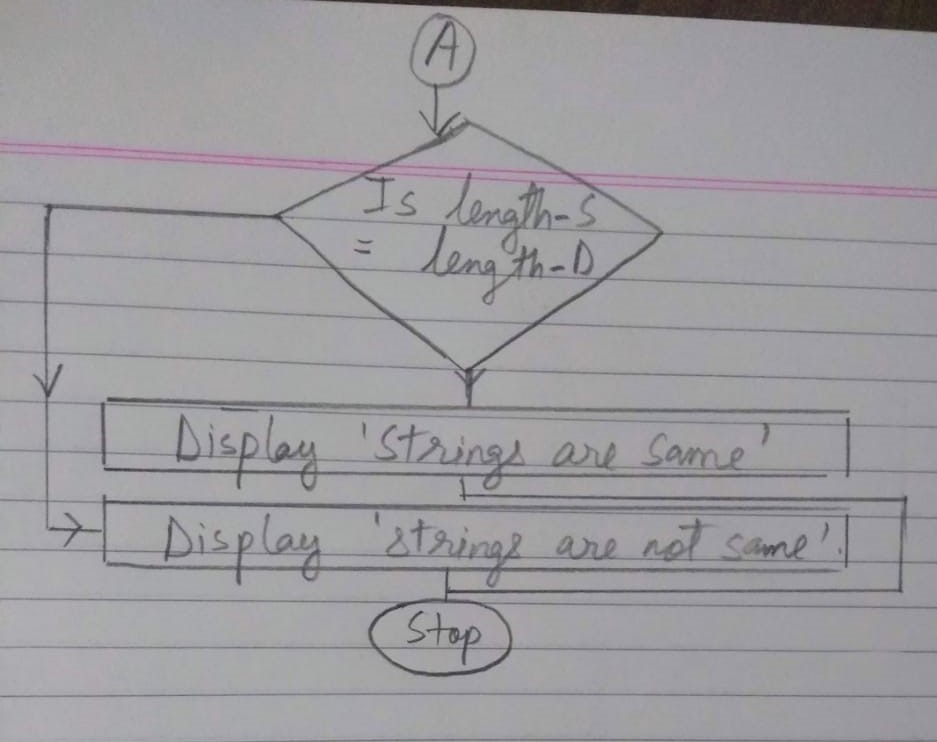 A
Is length-S
= length-D
Display 'Strings are Same'
Display 'strings are not same'.
Stop